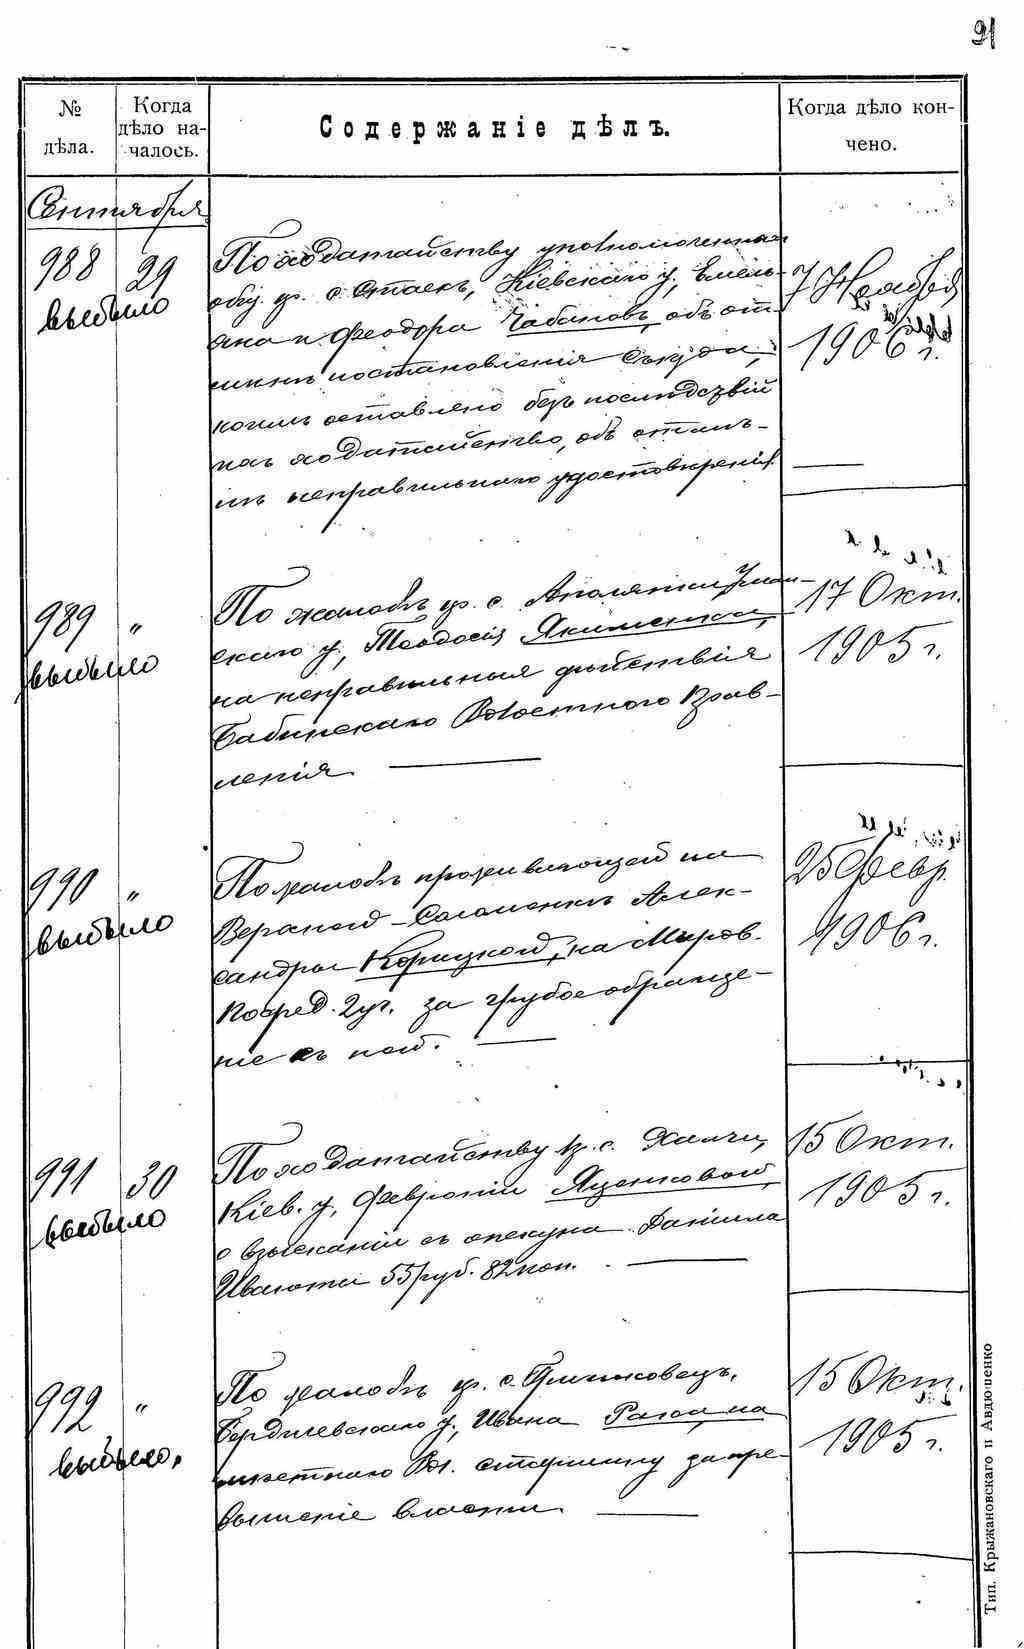 91
№ дѣла.
Когда дѣло началось.
Содержаніе дѣлъ.
Когда дѣло кончено.
Сентября
988 29 выбыло
По ходатайству уполномоченныхъ
общ. кр. с. Стаекъ, Кіевскаго у., Емель-
яна и Феодора Чабановъ, объ от-
мѣнѣ постановленія Съѣзда,
коимъ оставлено безъ послѣдствій
ихъ ходатайство, объ отмѣ-
нѣ неправильнаго удостовѣренія.
7 Ноября
1906 г.
989 " выбыло
По жалобѣ кр. с. Аполянки, Уман-
скаго у., Теодосія Якименка,
на неправильныя дѣйствія
Бабанскаго Волостного Прав-
ленія.
17 Окт.
1905 г.
990 " выбыло
По жалобѣ проживающей на
Верхней-Соломенкѣ Алек-
сандры Корицкой, на Миров.
Посред. 2 уч. за грубое обраще-
ніе съ ней.
25 Февр.
1906 г.
991 30 выбыло
По ходатайству кр. с. Халчи,
Кіев. у., Февроніи Яценковой,
о взысканіи съ опекуна Даніила
55 руб. 82 коп.
15 Окт.
1905 г.
992 " выбыло.
По жалобѣ кр. с.
Бердичевскаго у., Ивана на
мѣстнаго Вол. старшину за пре-
вышеніе власти.
15 Окт.
1905 г.
Тип. Крыжановскаго и Авдюшенко